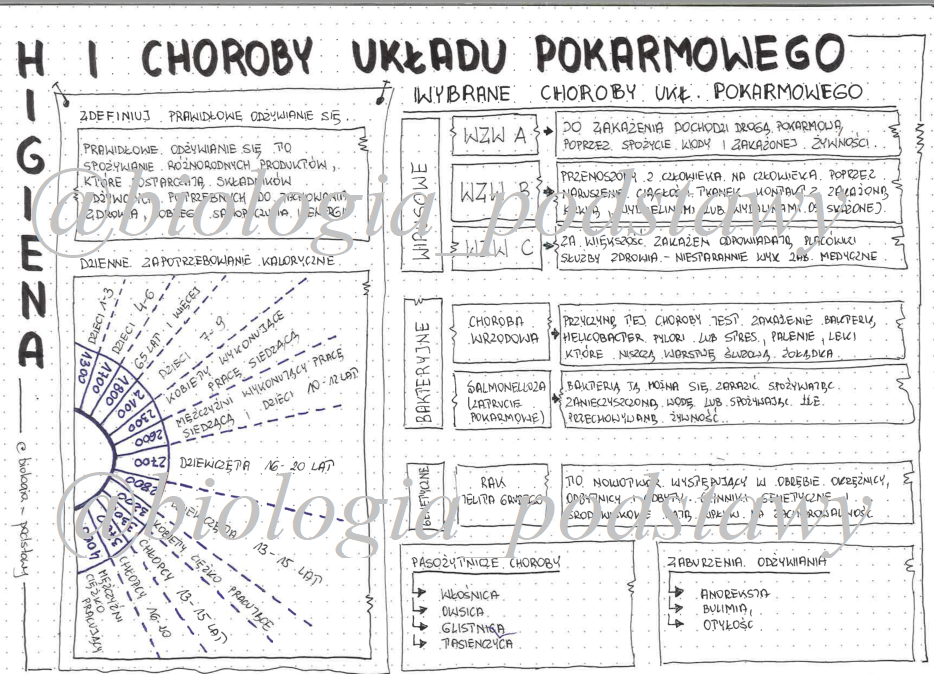 HIGIENA
I CHOROBY UKŁADU POKARMOWEGO
ZDEFINIUJ PRAWIDŁOWE ODŻYWIANIE SIĘ.
PRAWIDŁOWE ODŻYWIANIE SIĘ TO
SPOŻYWANIE RÓŻNORODNYCH PRODUKTÓW,
KTÓRE DOSTARCZAJĄ SKŁADNIKÓW
ODŻYWCZYCH POTRZEBNYCH DO ZACHOWANIA
ZDROWIA, DOBREGO SAMOPOCZUCIA I ENERGII
DZIENNE ZAPOTRZEBOWANIE KALORYCZNE
1300 DZIECI 1-3
1700 DZIECI 4-6
1800 65 LAT I WIĘCEJ
2100 DZIECI 7-9
2300 KOBIETY WYKONUJĄCE
PRACĘ SIEDZĄCĄ
2600 MĘŻCZYŹNI WYKONUJĄCY PRACĘ
SIEDZĄCĄ I DZIECI 10-12 LAT
2700 DZIEWCZĘTA 16-20 LAT
2800 DZIEWCZĘTA 13-15 LAT
KOBIETY CIĘŻKO PRACUJĄCE
CHŁOPCY 13-15 LAT
CHŁOPCY 16-20
MĘŻCZYŹNI
CIĘŻKO
PRACUJĄCY
@biologia_podstawy
WYBRANE CHOROBY UKŁ. POKARMOWEGO
WIRUSOWE
WZW A
DO ZAKAŻENIA DOCHODZI DROGĄ POKARMOWĄ,
POPRZEZ SPOŻYCIE WODY I ZAKAŻONEJ ŻYWNOŚCI.
WZW B
PRZENOSZONY Z CZŁOWIEKA NA CZŁOWIEKA POPRZEZ
NARUSZENIE CIĄGŁOŚCI TKANEK, KONTAKT Z ZAKAŻONĄ
KRWIĄ, WYDZIELINAMI LUB WYDALINAMI OS. SKAŻONEJ.
WZW C
ZA WIĘKSZOŚĆ ZAKAŻEŃ ODPOWIADAJĄ PLACÓWKI
SŁUŻBY ZDROWIA - NIESTARANNIE WYK. ZAB. MEDYCZNE
BAKTERYJNE
CHOROBA
WRZODOWA
PRZYCZYNĄ TEJ CHOROBY JEST ZAKAŻENIE BAKTERIĄ
HELICOBACTER PYLORI LUB STRES, PALENIE, LEKI
KTÓRE NISZCZĄ WARSTWĘ ŚLUZOWĄ ŻOŁĄDKA.
SALMONELLOZA
(ZATRUCIE
POKARMOWE)
BAKTERIĄ TĄ MOŻNA SIĘ ZARAZIĆ SPOŻYWAJĄC
ZANIECZYSZCZONĄ WODĘ LUB SPOŻYWAJĄC ŹLE
PRZECHOWYWANĄ ŻYWNOŚĆ.
GENETYCZNE
RAK
JELITA GRUBEGO
TO NOWOTWÓR WYSTĘPUJĄCY W OBRĘBIE OKRĘŻNICY,
ODBYTNICY I ODBYTU. CZYNNIKI GENETYCZNE I
ŚRODOWISKOWE MAJĄ WPŁYW NA ZACHOROWALNOŚĆ
PASOŻYTNICZE CHOROBY
WŁOŚNICA
OWSICA
GLISTNICA
TASIEMCZYCA
ZABURZENIA ODŻYWIANIA
ANOREKSJA
BULIMIA,
OTYŁOŚĆ
@biologia_podstawy
@biologia_podstawy